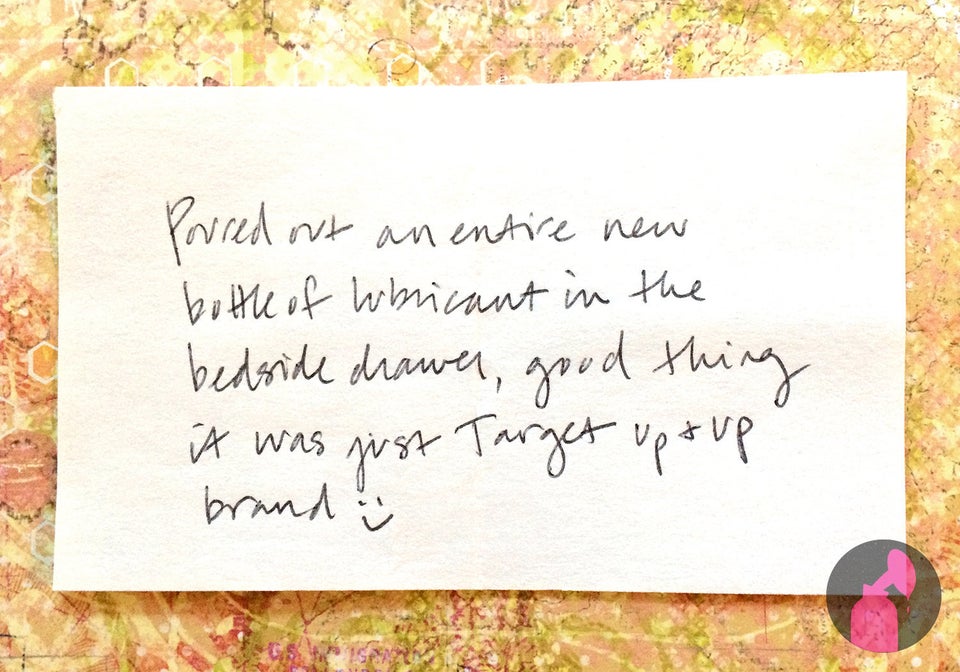 Poured out an entire new
bottle of lubricant in the
bedside drawer, good thing
it was just Target up + up
brand :)